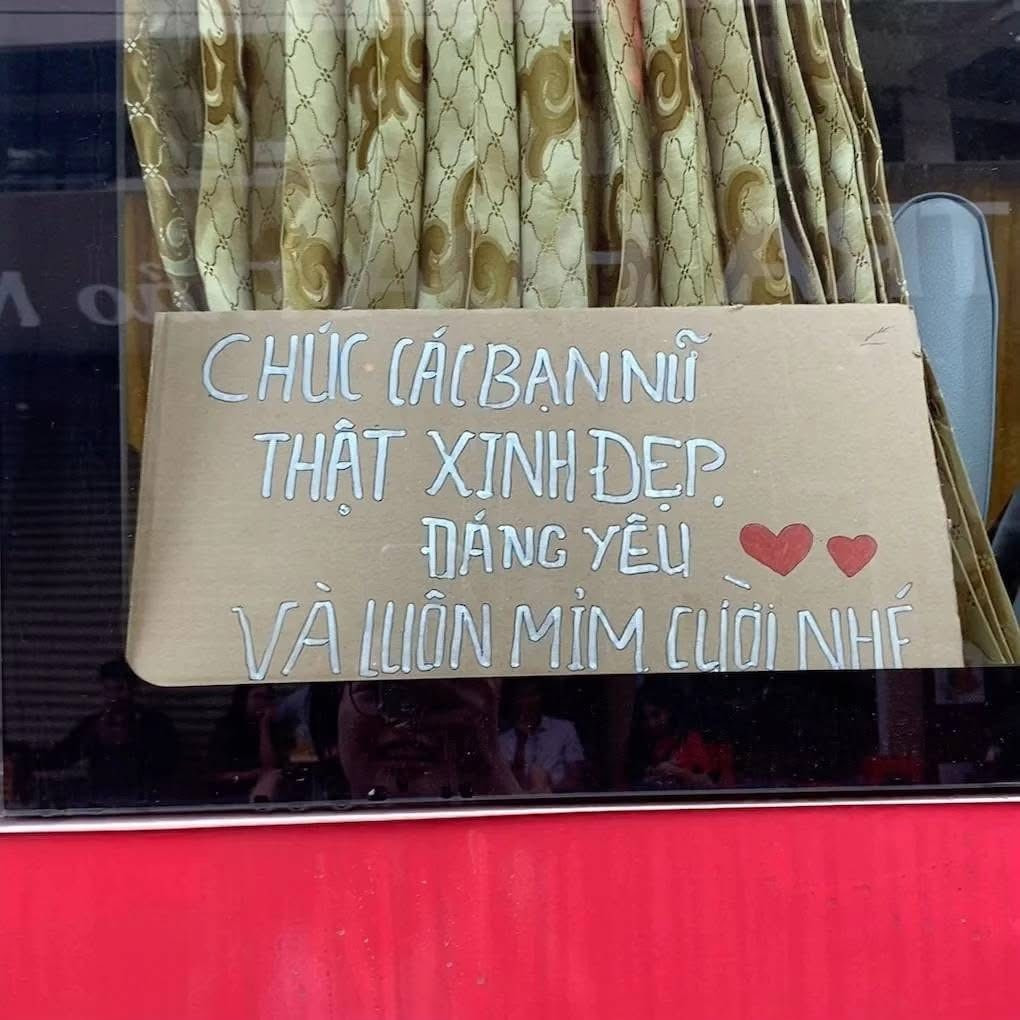 CHÚC CÁC BẠN NỮ
THẬT XINH ĐẸP.
ĐÁNG YÊU
VÀ LUÔN MỈM CƯỜI NHÉ